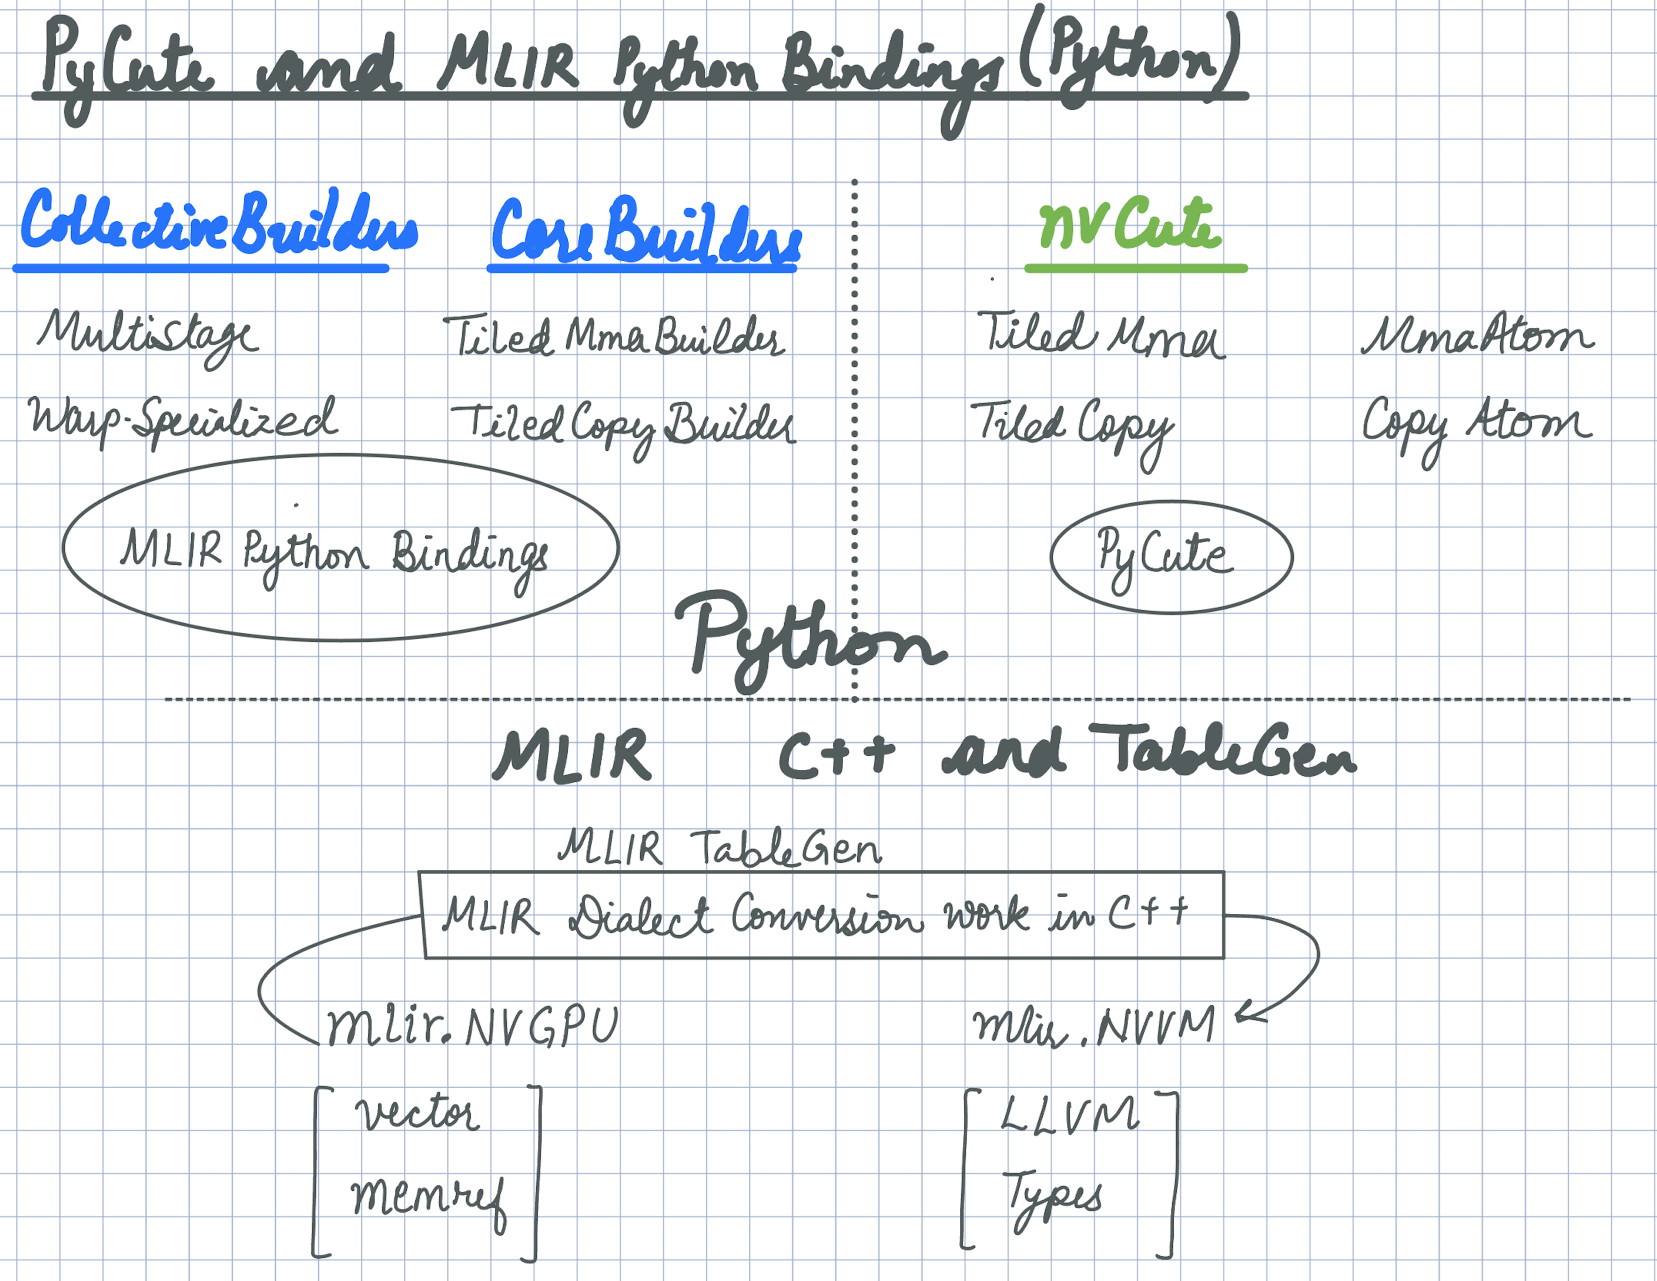 PyCute and MLIR Python Bindings (Python)
CollectiveBuilders
CoreBuilders
nvCute
Multistage
Tiled Mma Builder
Tiled Mma
MmaAtom
Warp-Specialized
Tiled Copy Builder
Tiled Copy
Copy Atom
MLIR Python Bindings
PyCute
Python
MLIR C++ and TableGen
MLIR TableGen
MLIR Dialect Conversion work in C++
mlir.NVGPU
mlir.NVVM
vector
LLVM
memref
Types